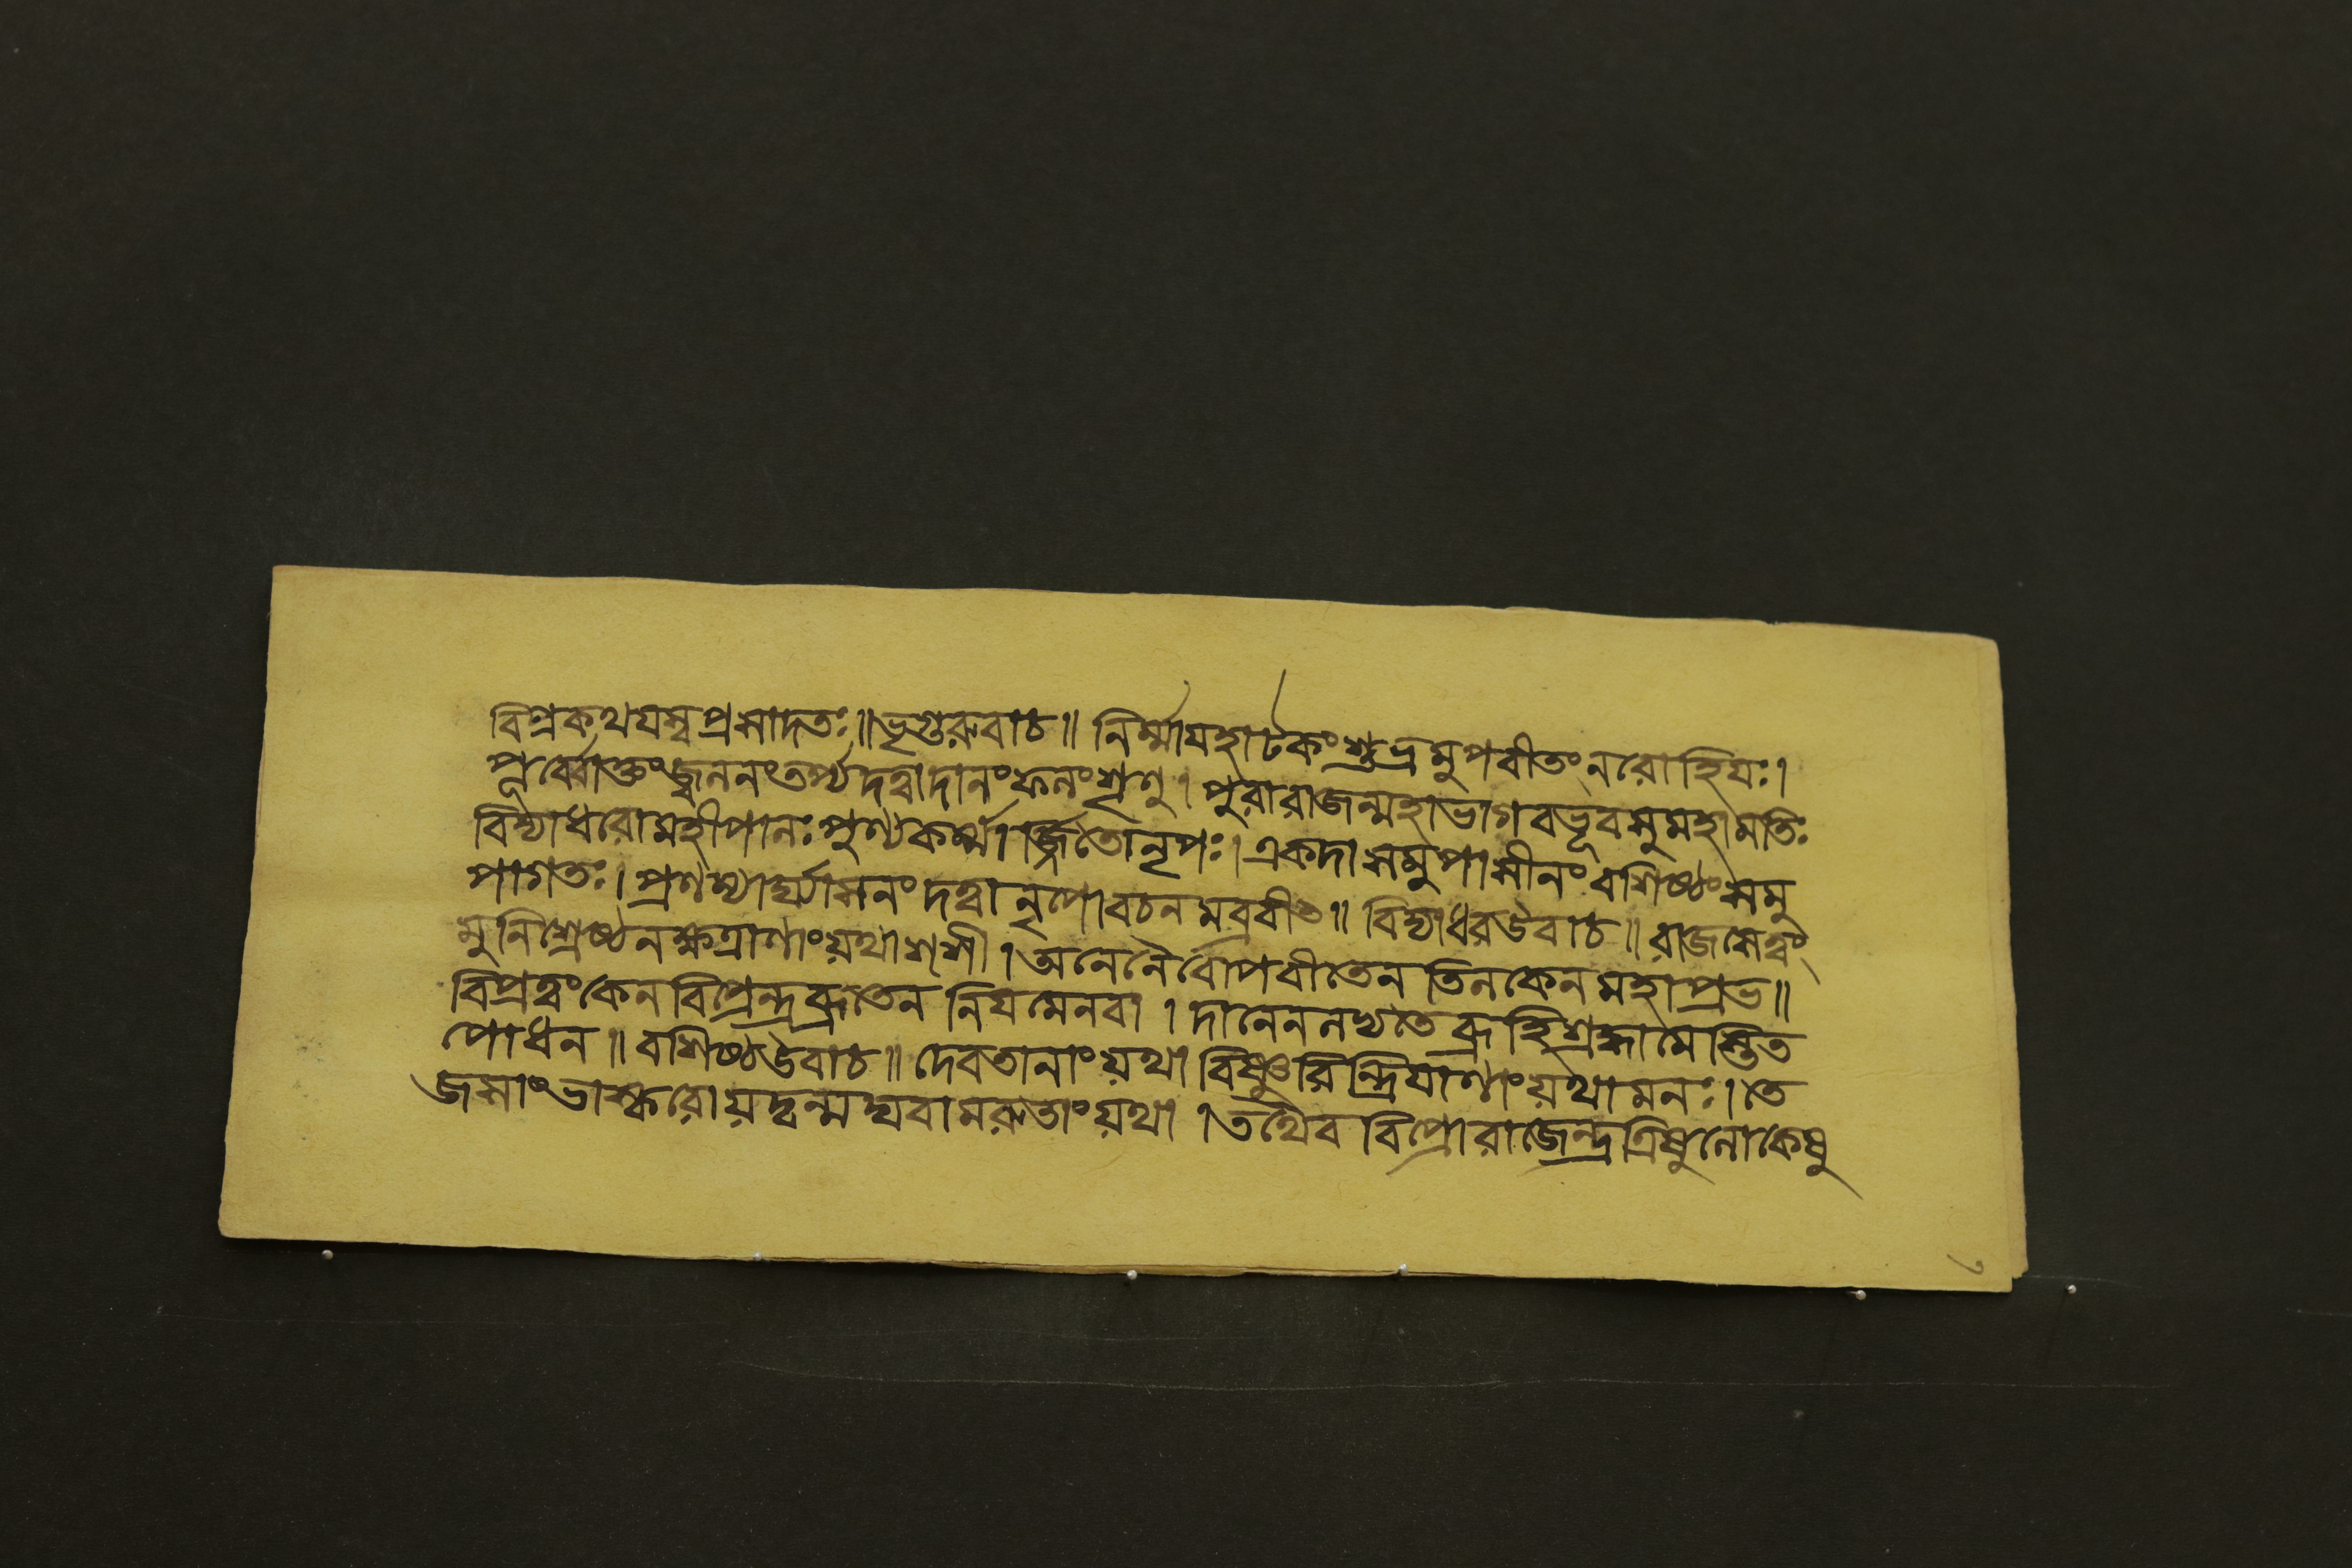 বিপ্রকথযস্বপ্রসাদতঃ॥ভৃগুরুবাচ॥ নির্ম্মাযহাটকংশুভ্রমুপবীতংনরোহিযঃ।
পূর্ব্বোক্তংজ্বলনংতর্প্যদত্বাদানংফলংশ্রৃণু। পুরারাজন্মহাভাগবভূবসুমহামতিঃ
বিদ্যাধরোমহীপালঃপুণ্যকর্ম্মার্জ্জিতোনৃপঃ।একদাসমুপাসীনংবশিষ্ঠংসমু
পাগতঃ। প্রণম্যার্ঘ্যাসনংদত্বানৃপোবচনমব্রবীৎ॥ বিদ্যাধরউবাচ॥ রাজসেত্বং
মুনিশ্রেষ্ঠনক্ষত্রাণাংয়থাশশী।অনেনৈবোপবীতেনতিলকেনমহাপ্রভ॥
বিপ্রত্বংকেনবিপ্রেন্দ্রব্রতেন নিযমেনবা । দানেনলভ্যতেব্রূহিশ্রদ্ধামেস্তিত
পোধন॥ বশিষ্ঠউবাচ॥ দেবতানাংয়থাবিষ্ণুরিন্দ্রিযাণাংয়থামনঃ।তে
জসাংভাস্করোয়দ্বন্মঘবামরুতাংয়থা ।তথৈব বিপ্রোরাজেন্দ্রত্রিষুলোকেষু